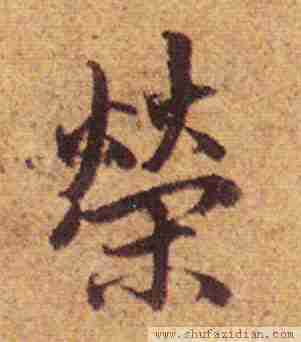 榮
www.shufazidian.com